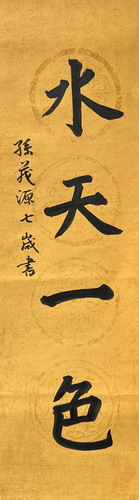 水天一色
孫茂源七歲書